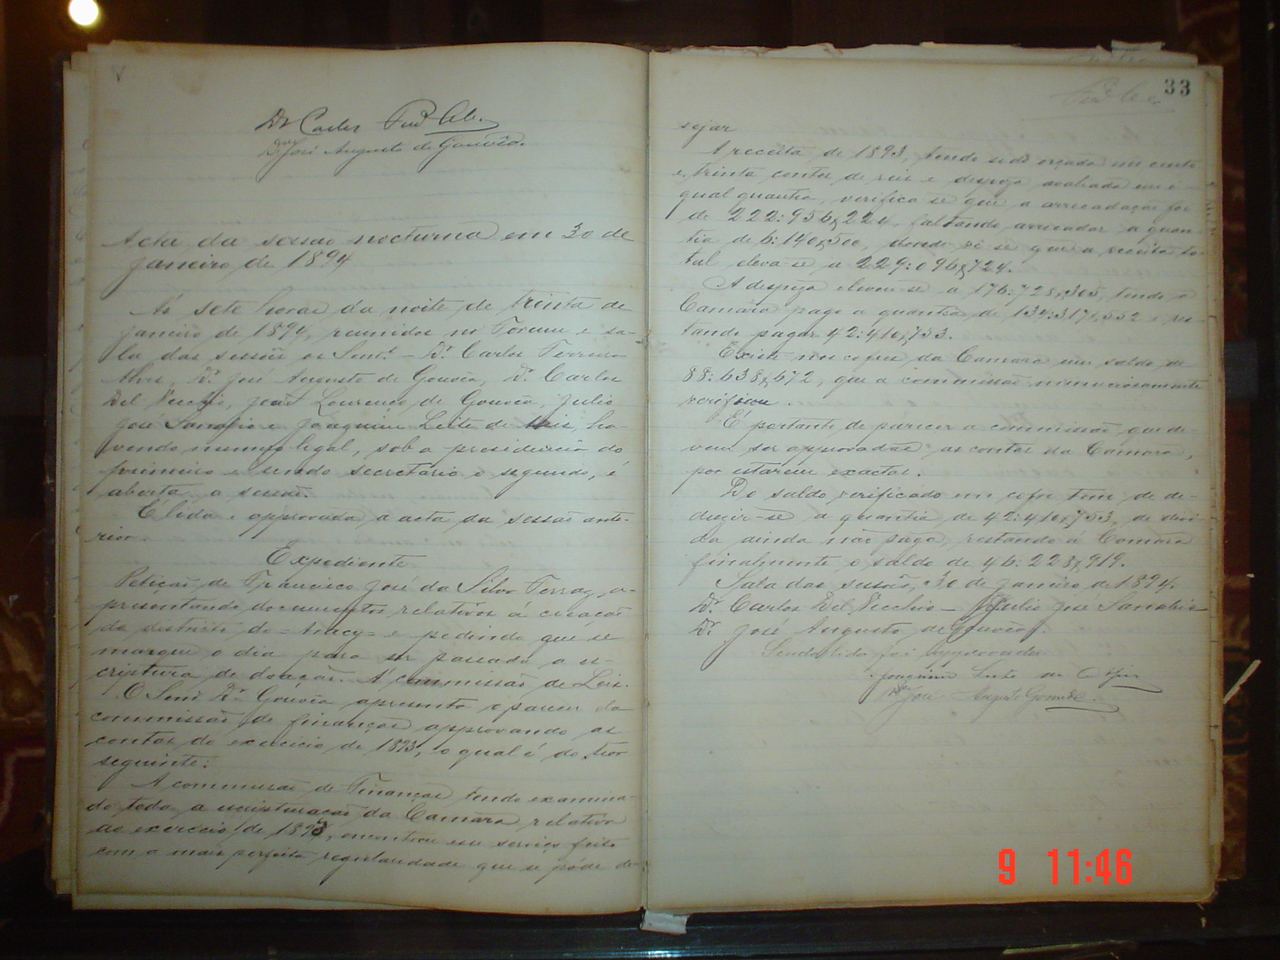 Dr Carlos Ferrª Alv.
Dr José Augusto de Gouvêa.
Acta da sessão nocturna em 30 de
Janeiro de 1894
Ás sete horas da noite de trinta de
janeiro de 1894, reunidos no Forum e sa-
la das sessões os Senrs. Dr. Carlos Ferreira
Alves, Dr. José Augusto de Gouvêa, Dr. Carlos
Del Vecchio, José Lourenço de Gouvêa, Julio
José Sarrafio e Joaquim Leite de, ha-
vendo numero legal, sob a presidencia do
primeiro e sendo secretario o segundo, é
aberta a sessão.
É lida e approvada a acta da sessão ante-
rior.
Expediente
Petição de Francisco José da Silva Ferraz, a-
presentando documentos relativos á creação
do districto do e pedindo que se
marque o dia para ser passada a es-
criptura de doação. A commissão de Leis.
O Senr Dr. Gouvêa apresenta o parecer da
commissão de finanças approvando as
contas do exercicio de 1893, o qual é do teor
seguinte:
A commissão de Finanças tendo examina-
do toda a escripturação da Camara relativa
ao exercicio de 1893, encontrou um serviço feito
com a mais perfeita regularidade que se póde de-
33
sejar
A receita de 1893, tendo sido orçada em cento
e trinta contos de reis e despeza avaliada em e-
gual quantia, verifica se que a arrecadação foi
de 222:956,224, faltando arrecadar a quan-
tia de 6:140,500, donde vê se que a receita to-
tal eleva-se a 229:096,724.
A despeza elevou-se a 176:728,305, tendo a
Camara pago a quantia de 134:317,552 e res-
tando pagar 42:410,753.
Existe nos cofres da Camara um saldo de
88:638,672, que a commissão
verificou.
É portanto de parecer a commissão que de-
vem ser approvadas as contas da Camara,
por estarem exactas.
Do saldo verificado em cofre tem de de-
duzir-se a quantia de 42:410,753, de divi-
da ainda não paga, restando á Camara
finalmente o saldo de 46:228,919.
Sala das sessões, 30 de Janeiro de 1894.
Dr. Carlos Del Vecchio – Julio José Sarrafio
Dr. José Augusto de Gouvêa.
Sendo lido foi approvado
Joaquim Leite de
Dr José Augusto Gouvêa.
9 11:46